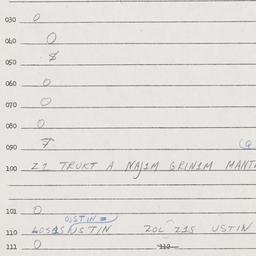 030 0
040 0
050 8
060 0
070 0
080 0
090 7
100 Z1 TRUKT A NAJIM GRINIM MANT
101 0
OISTIN =
110 USTIN ZOL Z1S USTIN
111 0 112